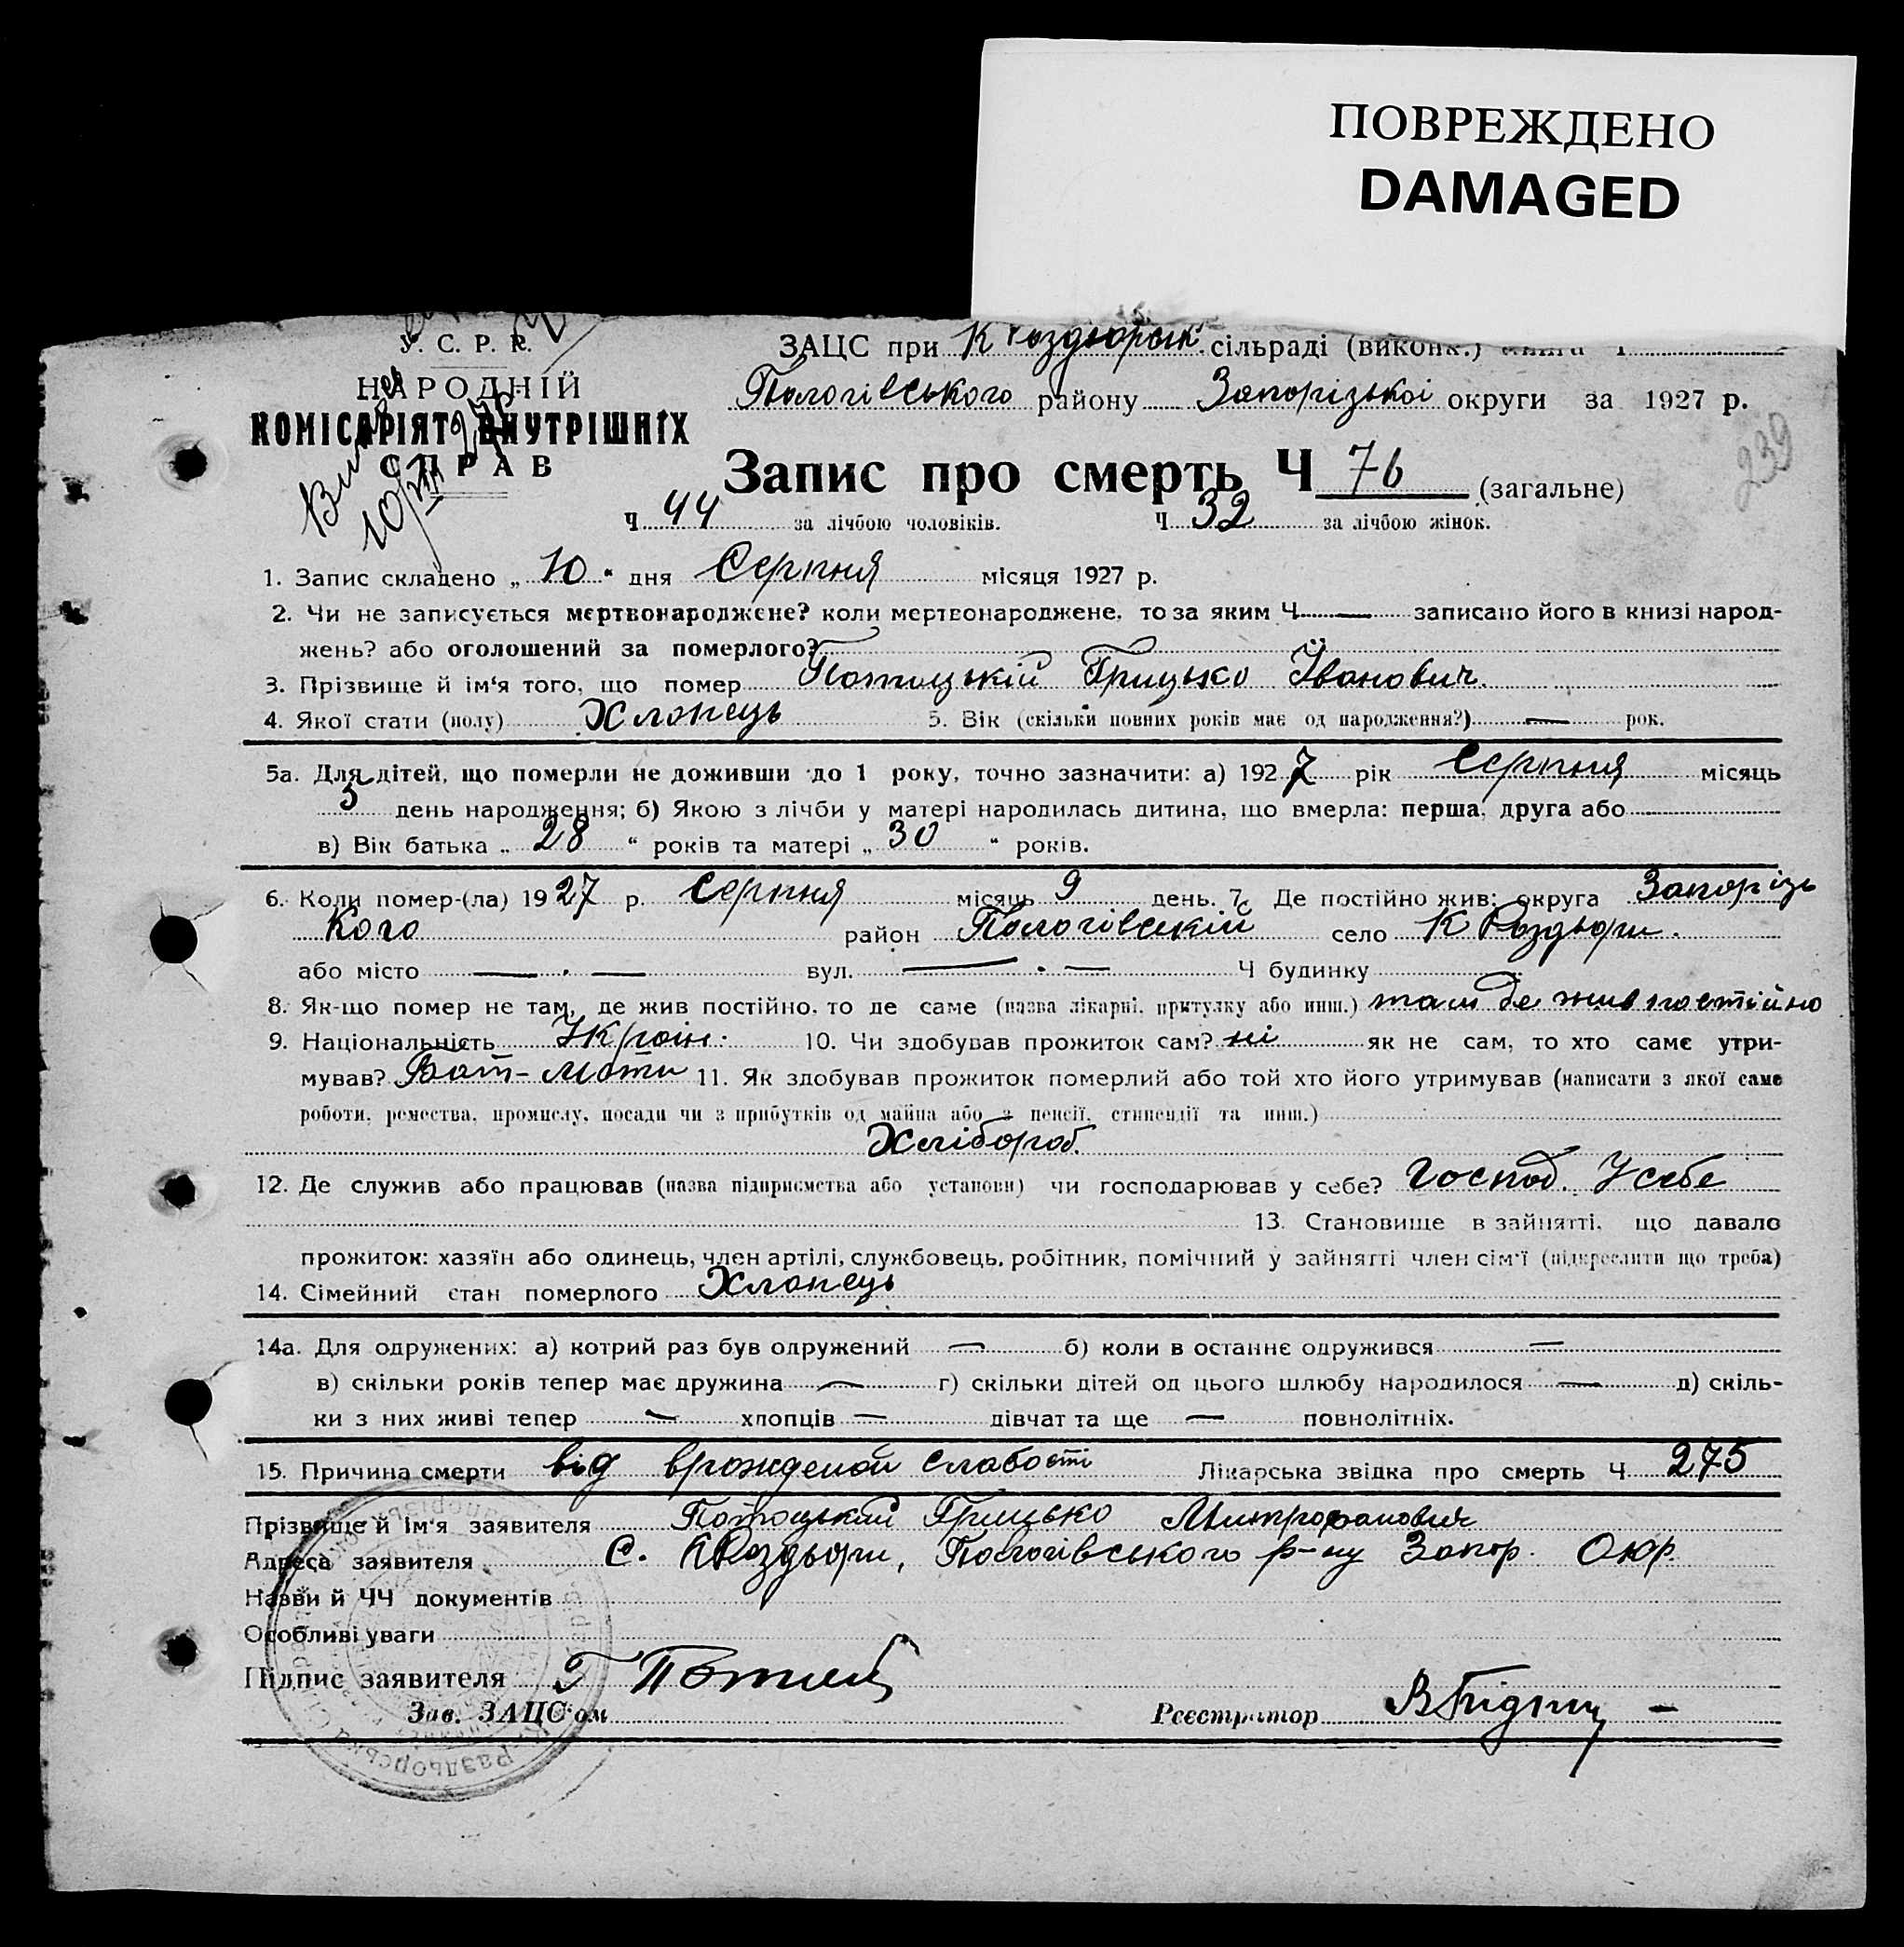 ПОВРЕЖДЕНО
DAMAGED
У. С. Р. Р.
НАРОДНІЙ
КОМІСАРІЯТ ВНУТРІШНІХ
СПРАВ
10/VIII
ЗАЦС при К Роздьорськ. сільраді (виконк.) книга
Пологівського району Запорізької округи за 1927 р.
239
Запис про смерть Ч 76 (загальне)
Ч 44 за лічбою чоловіків. Ч 32 за лічбою жінок.
1. Запис складено „ 10 “ дня Серпня місяця 1927 р.
2. Чи не записується мертвонароджене? коли мертвонароджене, то за яким Ч — записано його в книзі народ-
жень? або оголошений за померлого?
3. Прізвище й ім‘я того, що помер Потоцькій Грицько Іванович.
4. Якої стати (полу) Хлопець 5. Вік (скільки повних років має од народження?) — рок.
5а. Для дітей, що померли не доживши до 1 року, точно зазначити: а) 1927 рік Серпня місяць
5 день народження; б) Якою з лічби у матері народилась дитина, що вмерла: перша, друга або
в) Вік батька „ 28 “ років та матері „ 30 “ років.
6. Коли помер-(ла) 1927 р. Серпня місяць 9 день. 7. Де постійно жив: округа Запорізь
кого район Пологівський село К Роздьори.
або місто — . — вул. — . — Ч будинку
8. Як-що помер не там, де жив постійно, то де саме (назва лікарні, притулку або инш.) там де жив постійно
9. Національність Україн. 10. Чи здобував прожиток сам? ні як не сам, то хто саме утри-
мував? Бат- Мати 11. Як здобував прожиток померлий або той хто його утримував (написати з якої саме
роботи, ремества, промислу, посади чи з прибутків од майна або з пенсії, стипендії та инш.)
Хлібороб.
12. Де служив або працював (назва підприємства або установи) чи господарював у себе? Господ. У себе
13. Становище в зайнятті, що давало
прожиток: хазяїн або одинець, член артілі, службовець, робітник, помічний у зайнятті член сім'ї (підкреслити що треба)
14. Сімейний стан померлого Хлопець
14а. Для одружених: а) котрий раз був одружений — б) коли в останнє одружився —
в) скільки років тепер має дружина — г) скільки дітей од цього шлюбу народилося — д) скіль-
ки з них живі тепер — хлопців — дівчат та ще — повнолітніх.
15. Причина смерти від врожденой слабості Лікарська звідка про смерть Ч 275
Прізвище й ім‘я заявителя Потоцький Грицько Митрофанович
Адреса заявителя с. КРоздьори, Пологівського р-ну Запор. Окр.
Назви й ЧЧ документів
Особливі уваги
Підпис заявителя Г
Зав. ЗАЦС‘ом Реєстратор